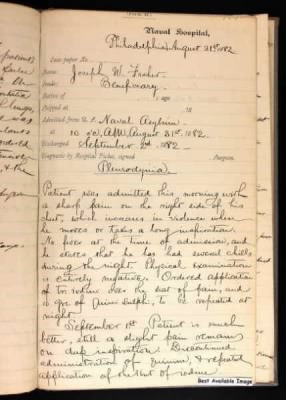 Naval Hospital,
Philadelphia August 31st 1882
Case paper No.
Name: Joseph W. Fraher
Grade: Beneficiary
Native of , age
Shipped at 18
Admitted from U. S. Naval Asylum
at 10 o'c, A.M. August 31st 1882.
Discharged September 2nd 1882
Diagnosis by Hospital Ticket, signed Surgeon.
Pleurodynia.
Patient was admitted this morning with
a sharp pain on the right side of his
chest, which increases in violence when
he moves or takes a long inspiration.
No fever at the time of admission, and
he states that he has had several chills
during the night. Physical Examination
is entirely negative. Ordered application
of Tr. iodine over the seat of pain, and
10 grs of Quiniæ Sulph. to be repeated at
night.
September 1st Patient is much
better, still a slight pain remains
on deep inspiration. Discontinued
administration of quinine, & repeated
application of tinct of iodine.
Best Available Image